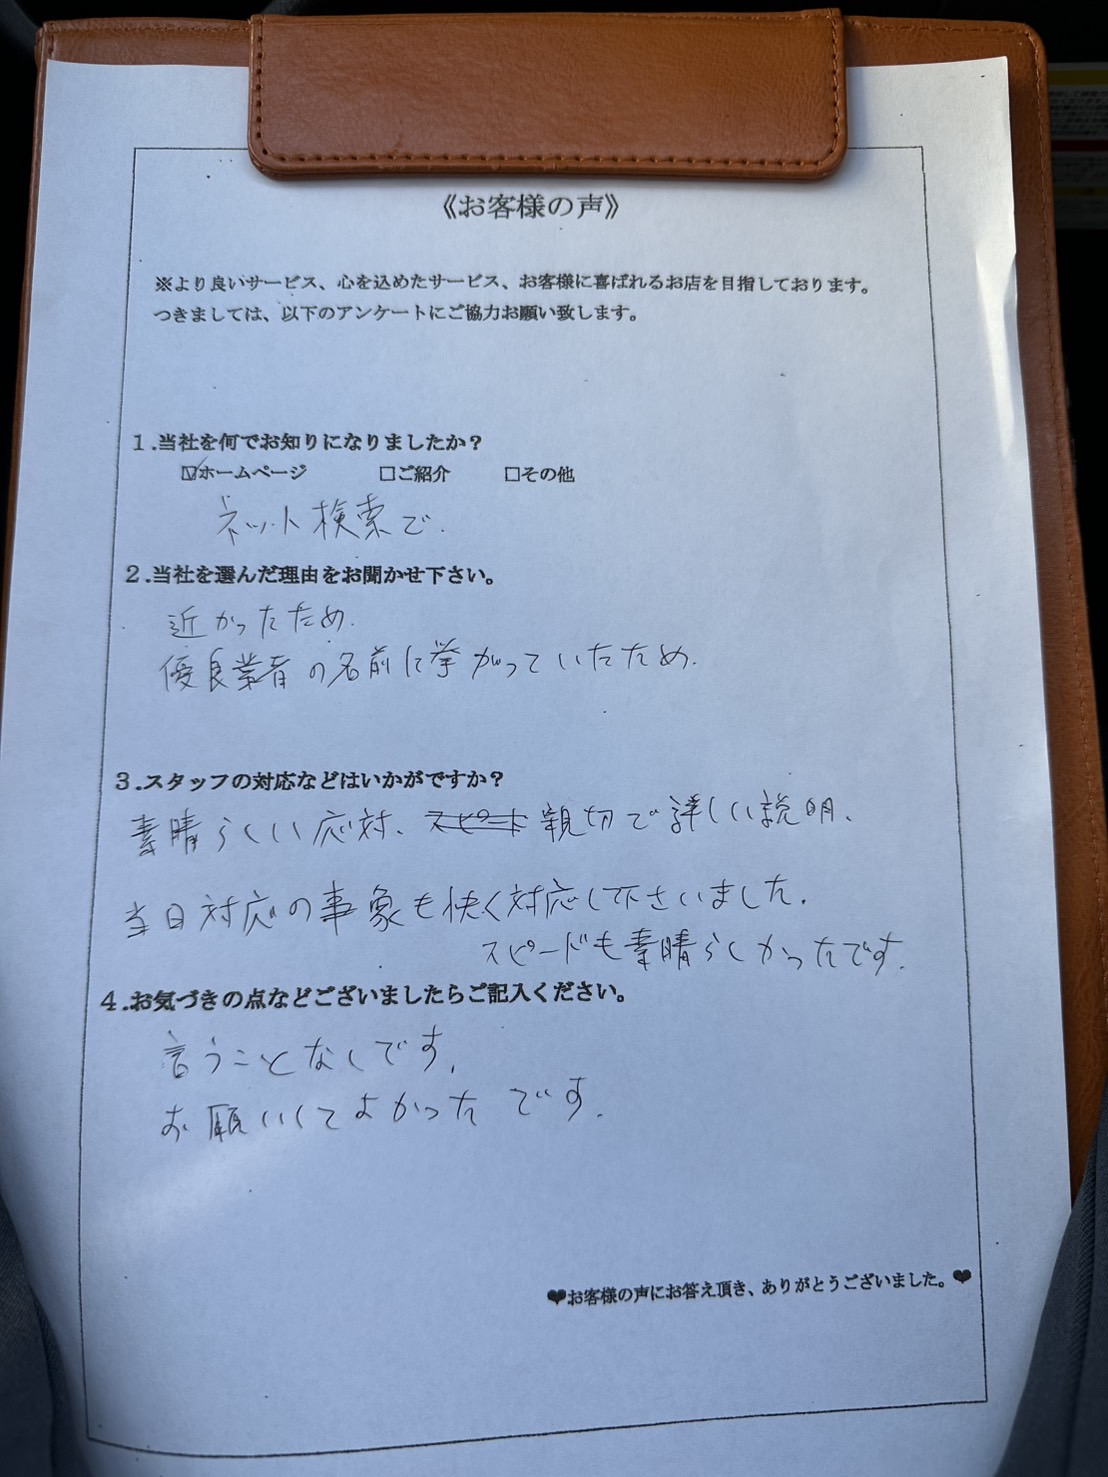 《お客様の声》
※より良いサービス、心を込めたサービス、お客様に喜ばれるお店を目指しております。
つきましては、以下のアンケートにご協力お願い致します。
1.当社を何でお知りになりましたか?
☑ホームページ □ご紹介 □その他
ネット検索で.
2.当社を選んだ理由をお聞かせ下さい。
近かったため.
優良業者の名前に挙がっていたため.
3.スタッフの対応などはいかがですか?
素晴らしい応対、スピード親切で詳しい説明、
当日対応の事象も快く対応して下さいました.
スピードも素晴らしかったです.
4.お気づきの点などございましたらご記入ください。
言うことなしです.
お願いしてよかったです.
❤お客様の声にお答え頂き、ありがとうございました。❤